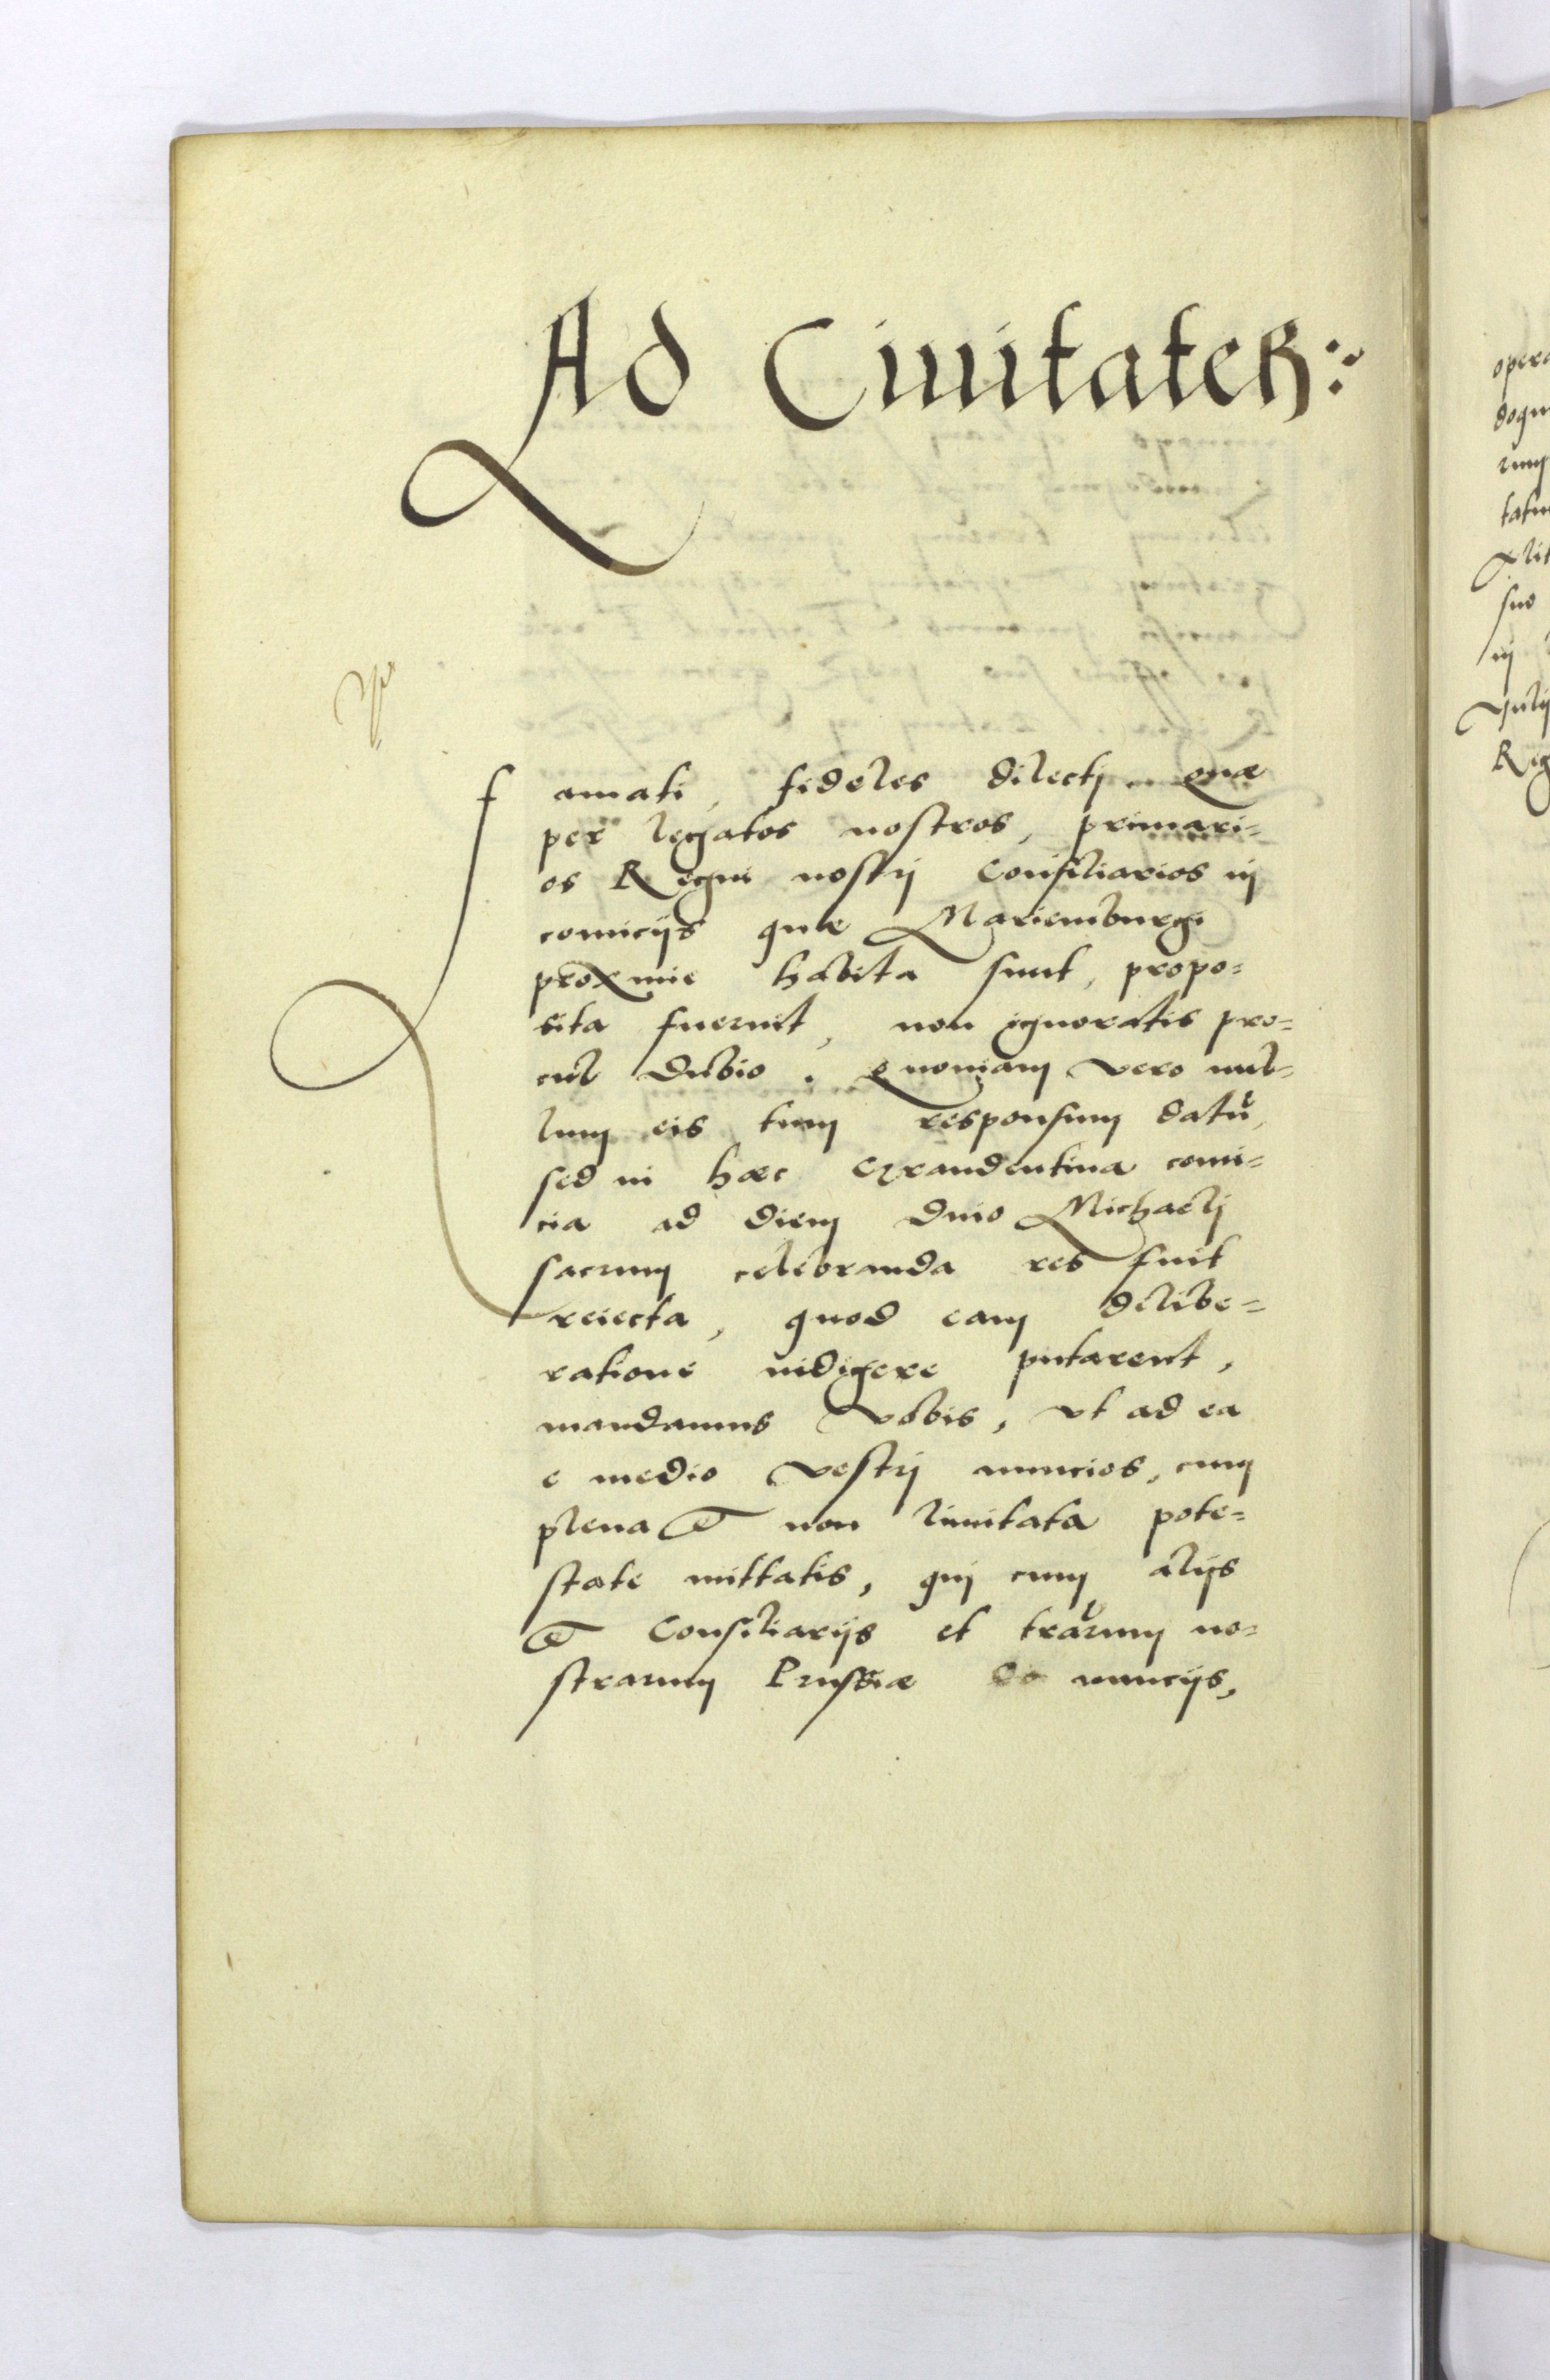 Ad Ciuitates:
Famati, fideles dilectj. Quæ
per legatos nostros, primari=
os Regni nostrj Consiliarios in
comicijs quæ Mariemburgi
proxime habita sunt, propo=
sita fuerunt, non ignoratis pro=
cul dubio. Quoniam vero nul=
lum eis tum responsum datū,
sed in hæc Grandentina comi=
cia ad diem Diuo Michaelj
sacrum celebranda res fuit
reiecta, quod eam delibe=
ratione indigere putarent,
mandamus vobis, vt ad ea
e medio vestrj nuncios, cum
plena et non limitata pote=
state mittatis, qui cum alijs
et Consiliarijs et trarum no=
strarum Prussiæ nuncijs,